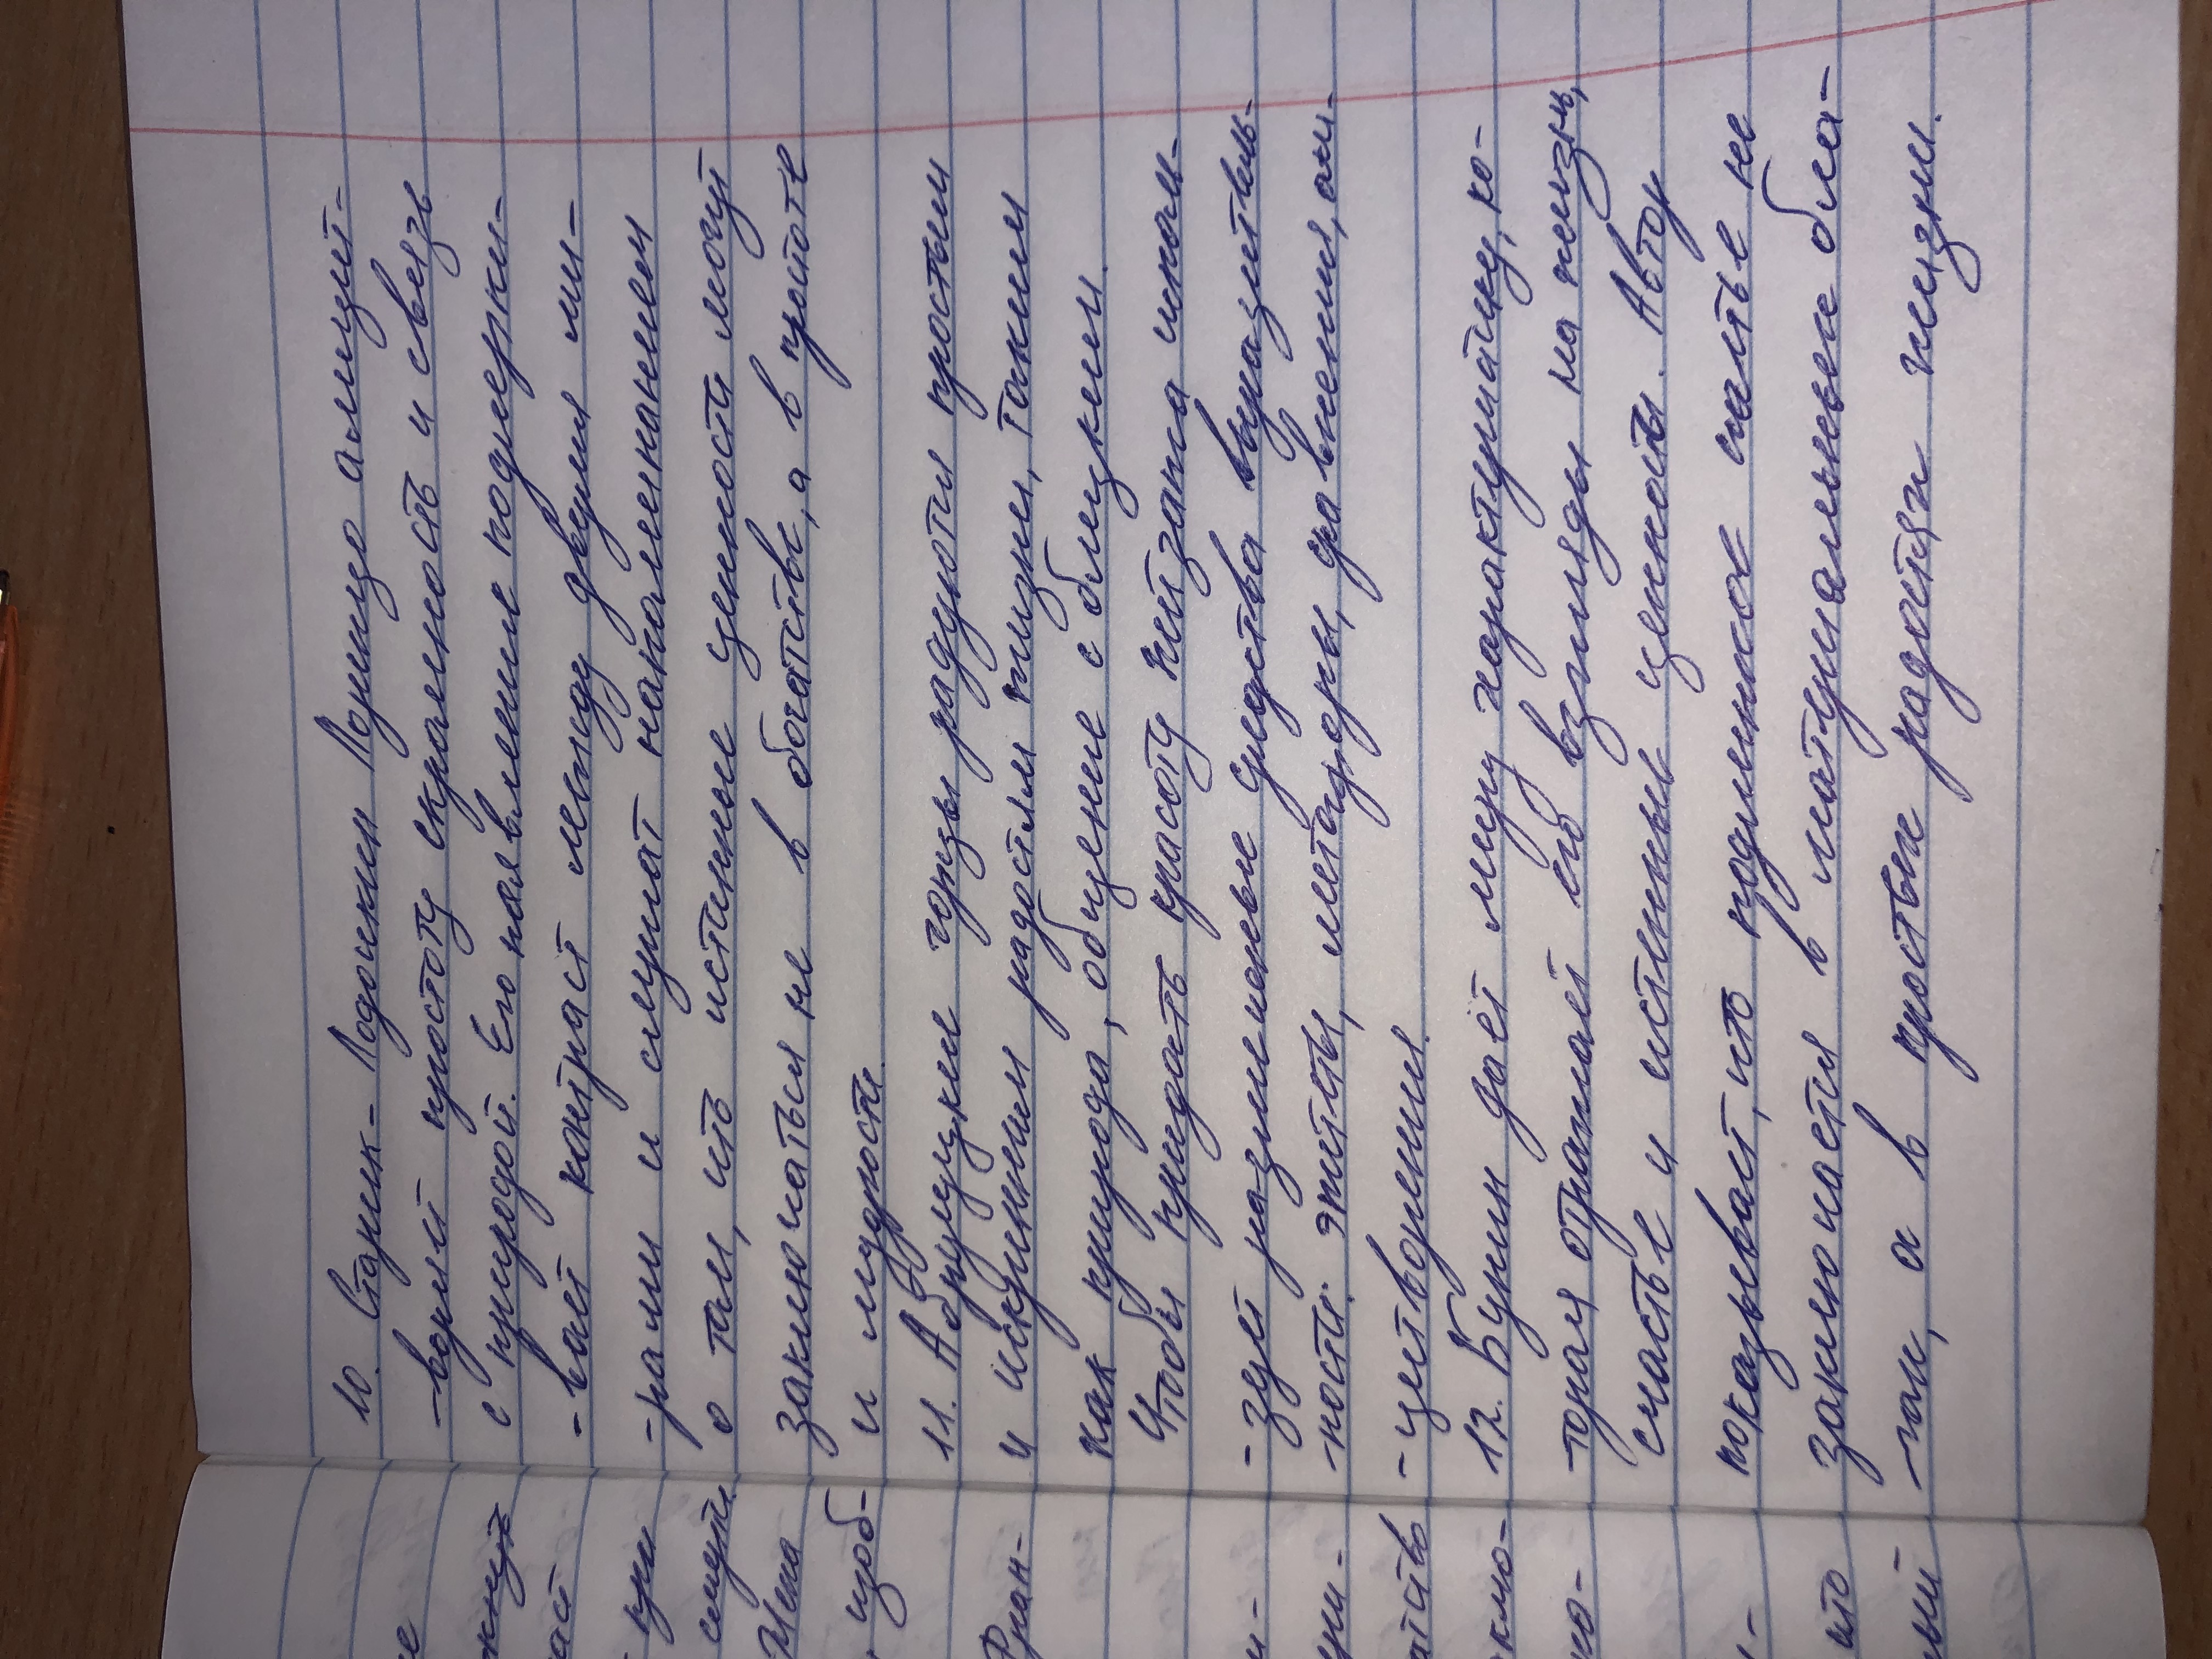 10. Старик-Лодочник Лоренцо олицет-
-воряет простоту искренность и связь
с природой. Его появление подчерки-
-вает контраст между двумя ми-
-рами и служит напоминанием
о том, что истинные ценности могут
заключаться не в богатстве, а в простоте
и мудрости.
11. Абруццкие горцы радуются простым
и искренним радостям жизни, таким
как природа, общение с близкими.
Чтобы придать красоту пейзажа исполь-
-зует различные средства выразитель-
-ности: эпитеты, метафоры, сравнения, оли-
-цетворения.
12. Бунин дает миру характеристику, ко-
-торая отражает его взгляды на жизнь,
счастье и истинные ценности. Автор
показывает, что подлинное счастье не
заключается в материальных бла-
-гах, а в простых радостях жизни.
при
Мина
изоб-
Фран-
что